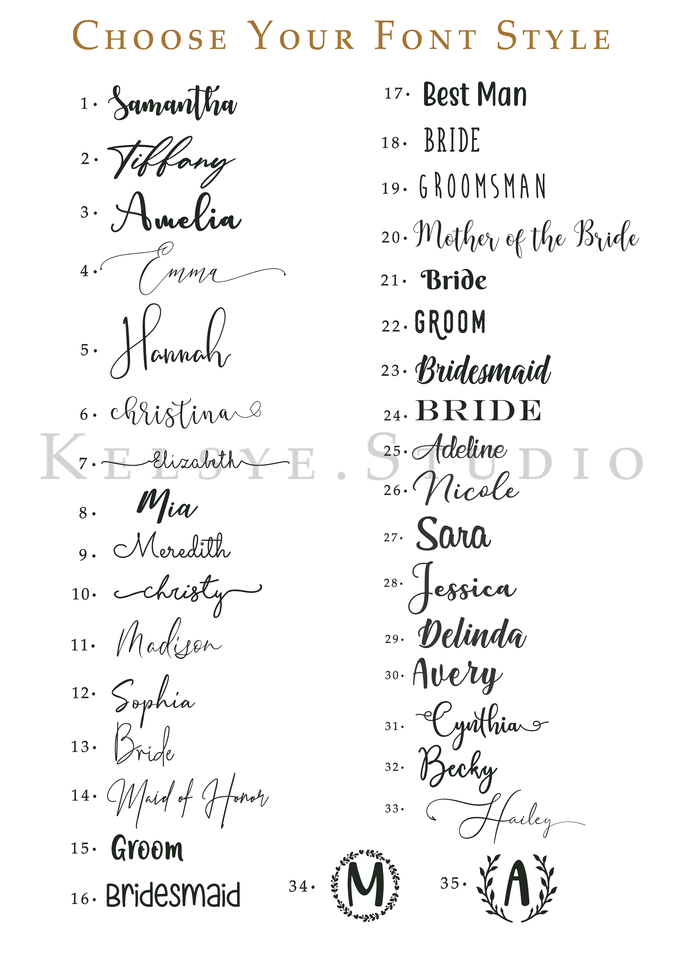 Choose Your Font Style
1. Samantha
2. Tiffany
3. Amelia
4. Emma
5. Hannah
6. christina
7. Elizabeth
8. Mia
9. Meredith
10. christy
11. Madison
12. Sophia
13. Bride
14. Maid of Honor
15. Groom
16. Bridesmaid
17. Best Man
18. BRIDE
19. GROOMSMAN
20. Mother of the Bride
21. Bride
22. GROOM
23. Bridesmaid
24. BRIDE
25. Adeline
26. Nicole
27. Sara
28. Jessica
29. Delinda
30. Avery
31. Cynthia
32. Becky
33. Hailey
34. M
35. A
Kelsye.Studio